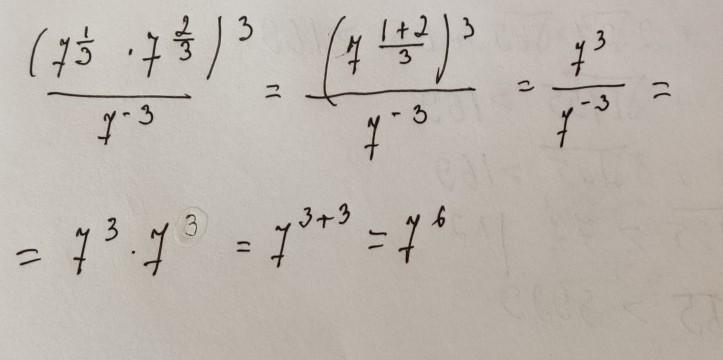 (7^{1/3} · 7^{2/3})^3 / 7^{-3} = (7^{(1+2)/3})^3 / 7^{-3} = 7^3 / 7^{-3} =
= 7^3 · 7^3 = 7^{3+3} = 7^6